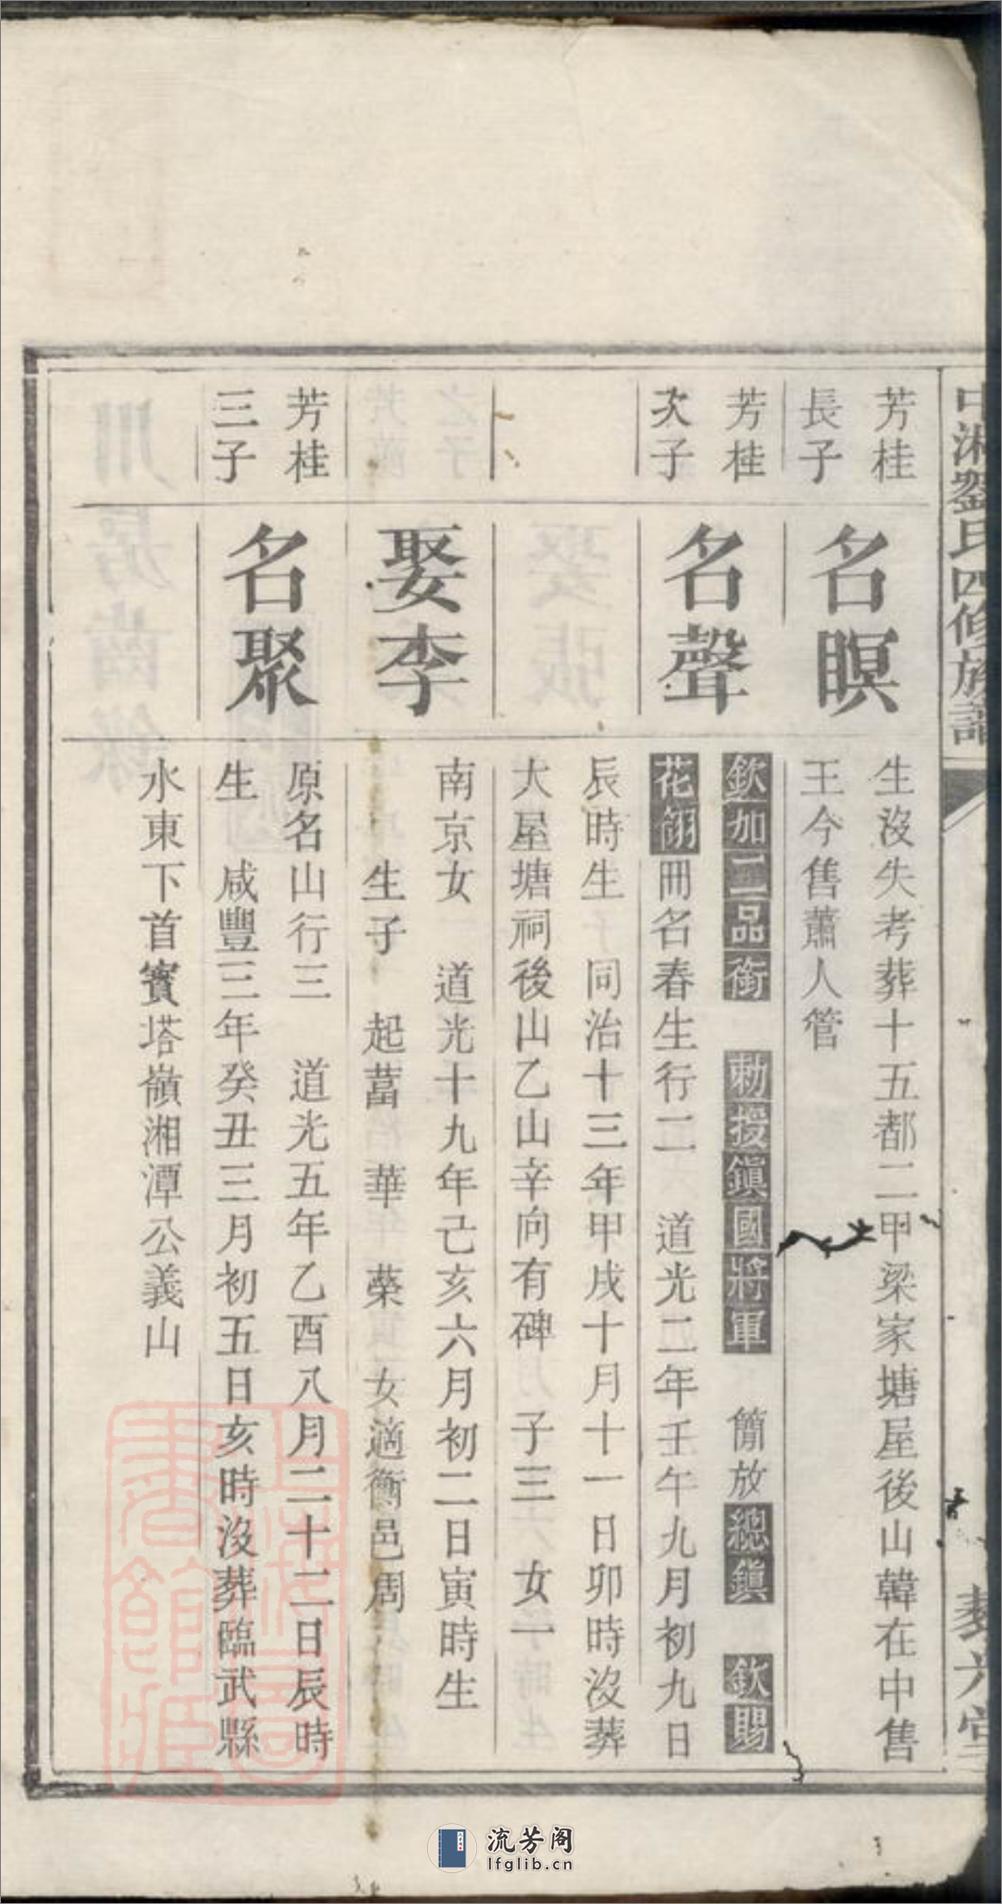 中湘劉氏四修族譜
芳桂
長子
名瞑
生沒失考葬十五都二甲梁家塘屋後山韓在中售
王今售蕭人管
芳桂
次子
名聲
欽加二品銜 勅授鎮國將軍 簡放總鎮 欽賜
花翎冊名春生行二 道光二年壬午九月初九日
辰時生 同治十三年甲戌十月十一日卯時沒葬
大屋塘祠後山乙山辛向有碑 子三 女一
娶李
南京女 道光十九年己亥六月初二日寅時生
生子 起蒕 華 榮 女適衡邑周
芳桂
三子
名聚
原名山行三 道光五年乙酉八月二十二日辰時
生 咸豐三年癸丑三月初五日亥時沒葬臨武縣
水東下首寶塔嶺湘潭公義山
上海圖
書館藏
流芳阁
lfglib.cn